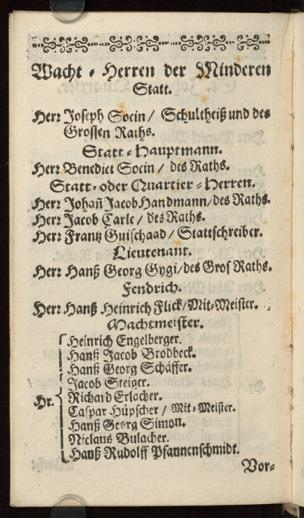 Wacht-Herren der Minderen
Statt.
Herr Joseph Socin / Schultheiß und des
Grossen Raths.
Statt-Hauptmann.
Herr Benedict Socin / des Raths.
Statt-oder Quartier-Herren.
Herr Johañ Jacob Handmann/des Raths.
Herr Jacob Carle / des Raths.
Herr Frantz Guischaad / Stattschreiber.
Lieutenant.
Herr Hanß Georg Gygi/des Gros Raths.
Fendrich.
Herr Hanß Heinrich Flick/Mit-Meister.
Wachtmeister.
Heinrich Engelberger.
Hanß Jacob Brodbeck.
Hanß Georg Schäffer.
Jacob Steiger.
Hr. Richard Erlacher.
Caspar Hüpscher / Mit-Meister.
Hanß Georg Simon.
Niclaus Bulacher.
Hanß Rudolff Pfannenschmidt.
Vor-